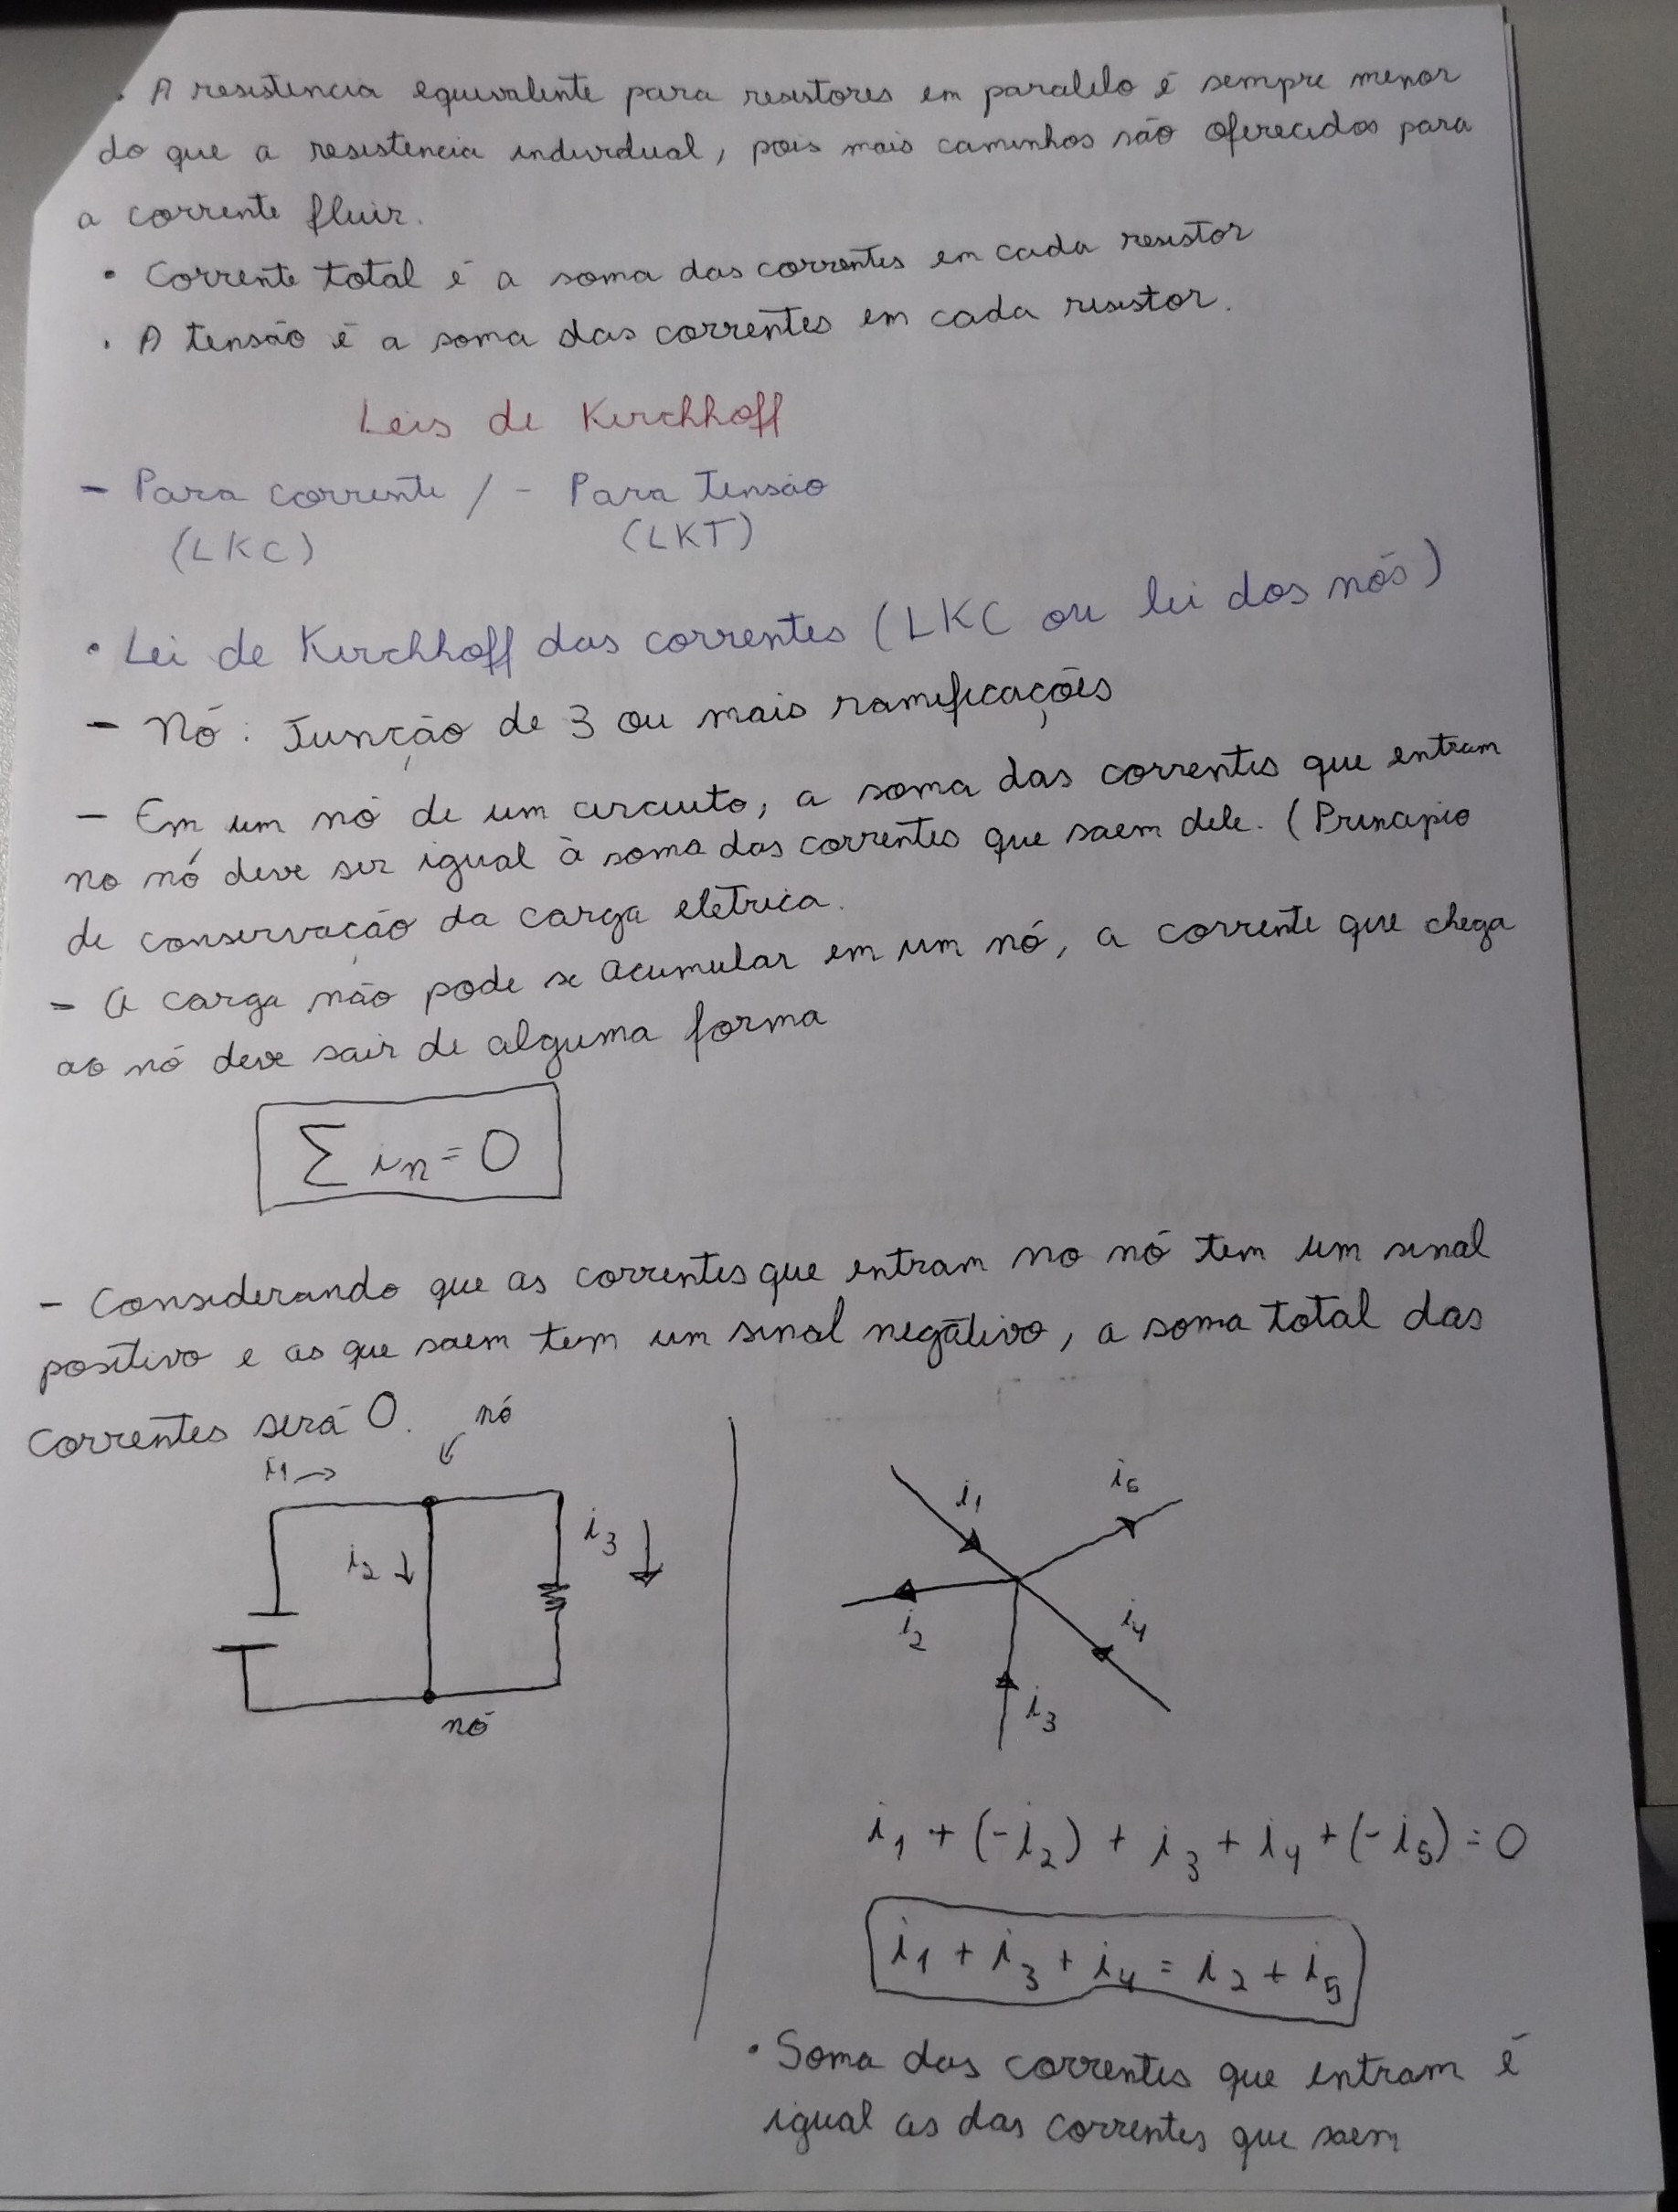 . A resistencia equivalente para resistores em paralelo é sempre menor
do que a resistencia individual, pois mais caminhos são oferecidos para
a corrente fluir.
• Corrente total é a soma das correntes em cada resistor
. A tensão é a soma das correntes em cada resistor.
Leis de Kirchhoff
- Para corrente / - Para Tensão
(LKC) (LKT)
• Lei de Kirchhoff das correntes (LKC ou lei dos nós)
- Nó: Junção de 3 ou mais ramificações
- Em um nó de um circuito, a soma das correntes que entram
no nó deve ser igual à soma das correntes que saem dele. (Principio
de conservação da carga elétrica.
- A carga não pode se acumular em um nó, a corrente que chega
ao nó deve sair de alguma forma
∑ in = 0
- Considerando que as correntes que entram no nó tem um sinal
positivo e as que saem tem um sinal negátivo, a soma total das
Correntes será 0.
nó
i1 →
i2 ↓
i3 ↓
nó
i1
i5
i2
i4
i3
i1 + (-i2) + i3 + i4 + (-i5) = 0
i1 + i3 + i4 = i2 + i5
• Soma das correntes que entram é
igual as das correntes que saem